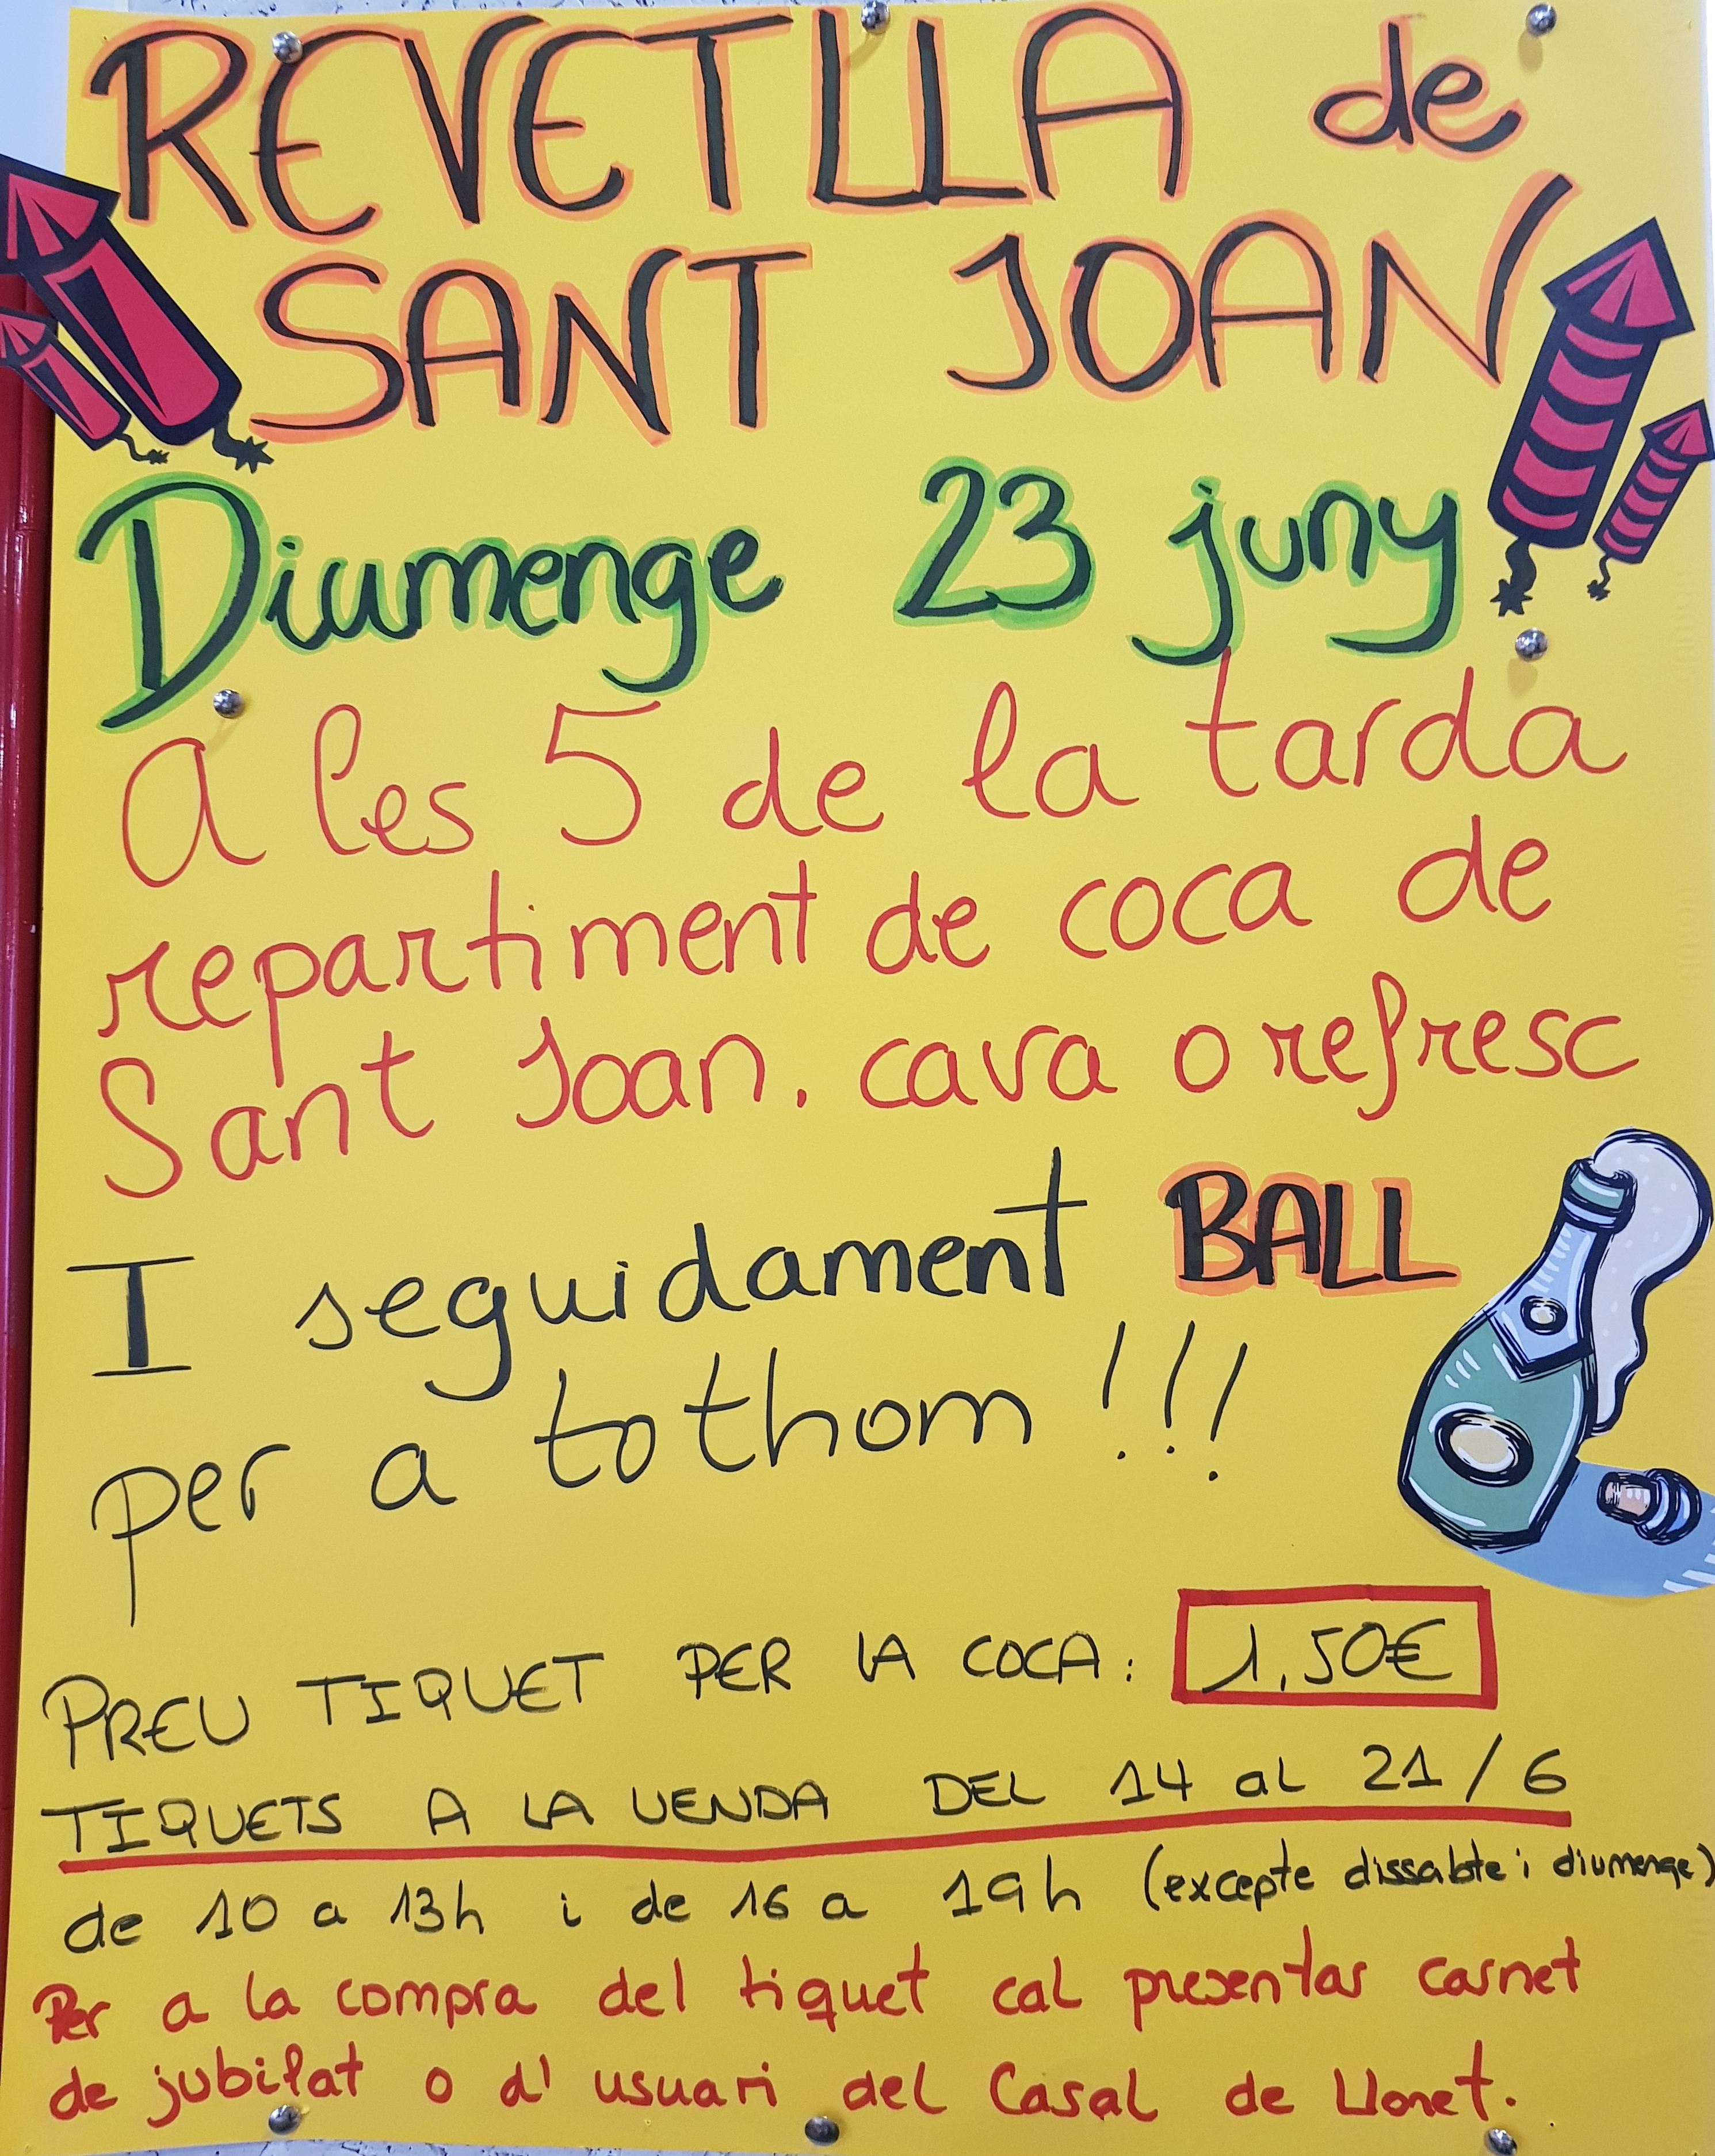 REVETLLA de
SANT JOAN
Diumenge 23 juny
A les 5 de la tarda
repartiment de coca de
Sant Joan. cava o refresc
I seguidament BALL
per a tothom!!!
PREU TIQUET PER LA COCA: 1,50€
TIQUETS A LA VENDA DEL 14 al 21/6
de 10 a 13h i de 16 a 19h (excepte dissabte i diumenge)
Per a la compra del tiquet cal presentar carnet
de jubilat o d'usuari del Casal de Llonet.